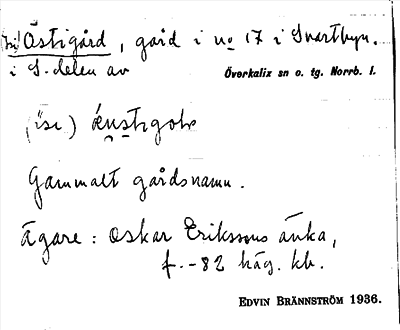 Östigård, gård i nº 17 i Svartbyn.
i S. delen av Överkalix sn o. tg. Norrb. l.
Gammalt gårdsnamn.
Ägare: Oskar Erikssons änka,
f. -82 häg. kb.
EDVIN BRÄNNSTRÖM 1936.